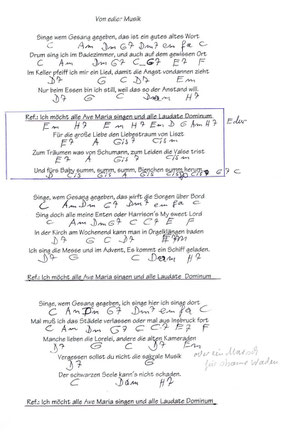 Von edler Musik
Singe wem Gesang gegeben, das ist ein gutes altes Wort
C Am Dm G7 Dm7 em fa C
Drum sing ich im Badezimmer, und auch auf dem gewissen Ort
C Am Dm G7 C G7 E7 F
Im Keller pfeif ich mir ein Lied, damit die Angst vondannen zieht
D7 G C D7 Em
Nur beim Essen bin ich still, weil das so der Anstand will.
D7 G C Dam H7
Ref.: Ich möcht alle Ave Maria singen und alle Laudate Dominum
Em H7 Em H7 Em D G Am H7 E dur
Für die große Liebe den Liebestraum von Liszt
E7 A Gis7 Cism
Zum Träumen was von Schumann, zum Leiden die Valse trist
E7 A Gis7 Cism
Und fürs Baby summ, summ, summ, Bienchen summ herum
D Cis Gis A Gis G7 C
Singe, wem Gesang gegeben, das wirft die Sorgen über Bord
C Am Dm G7 Dm7 em fa C
Sing doch alle meine Enten oder Harrison's My sweet Lord
C Am Dm G7 C C7 E F
In der Kirch am Wochenend kann man in Orgelklängen baden
D7 G C D7 Em
Ich sing die Messe und im Advent, Es kommt ein Schiff geladen.
D7 G C Dam H7
Ref.: Ich möcht alle Ave Maria singen und alle Laudate Dominum
Singe, wem Gesang gegeben, ich singe hier ich singe dort
C Am Dm G7 Dm7 em fa C
Mal muß ich das Städele verlassen oder mal aus Insbruck fort
C Am Dm G7 C C7 E7 F
Manche lieben die Lorelei, andere die alten Kameraden
D7 G C D7 Em
oder ein Marsch
für stramme Waden
Vergessen sollst du nicht die sakrale Musik
D7 G
Der schwarzen Seele kann's nicht schaden.
C Dam H7
Ref.: Ich möcht alle Ave Maria singen und alle Laudate Dominum